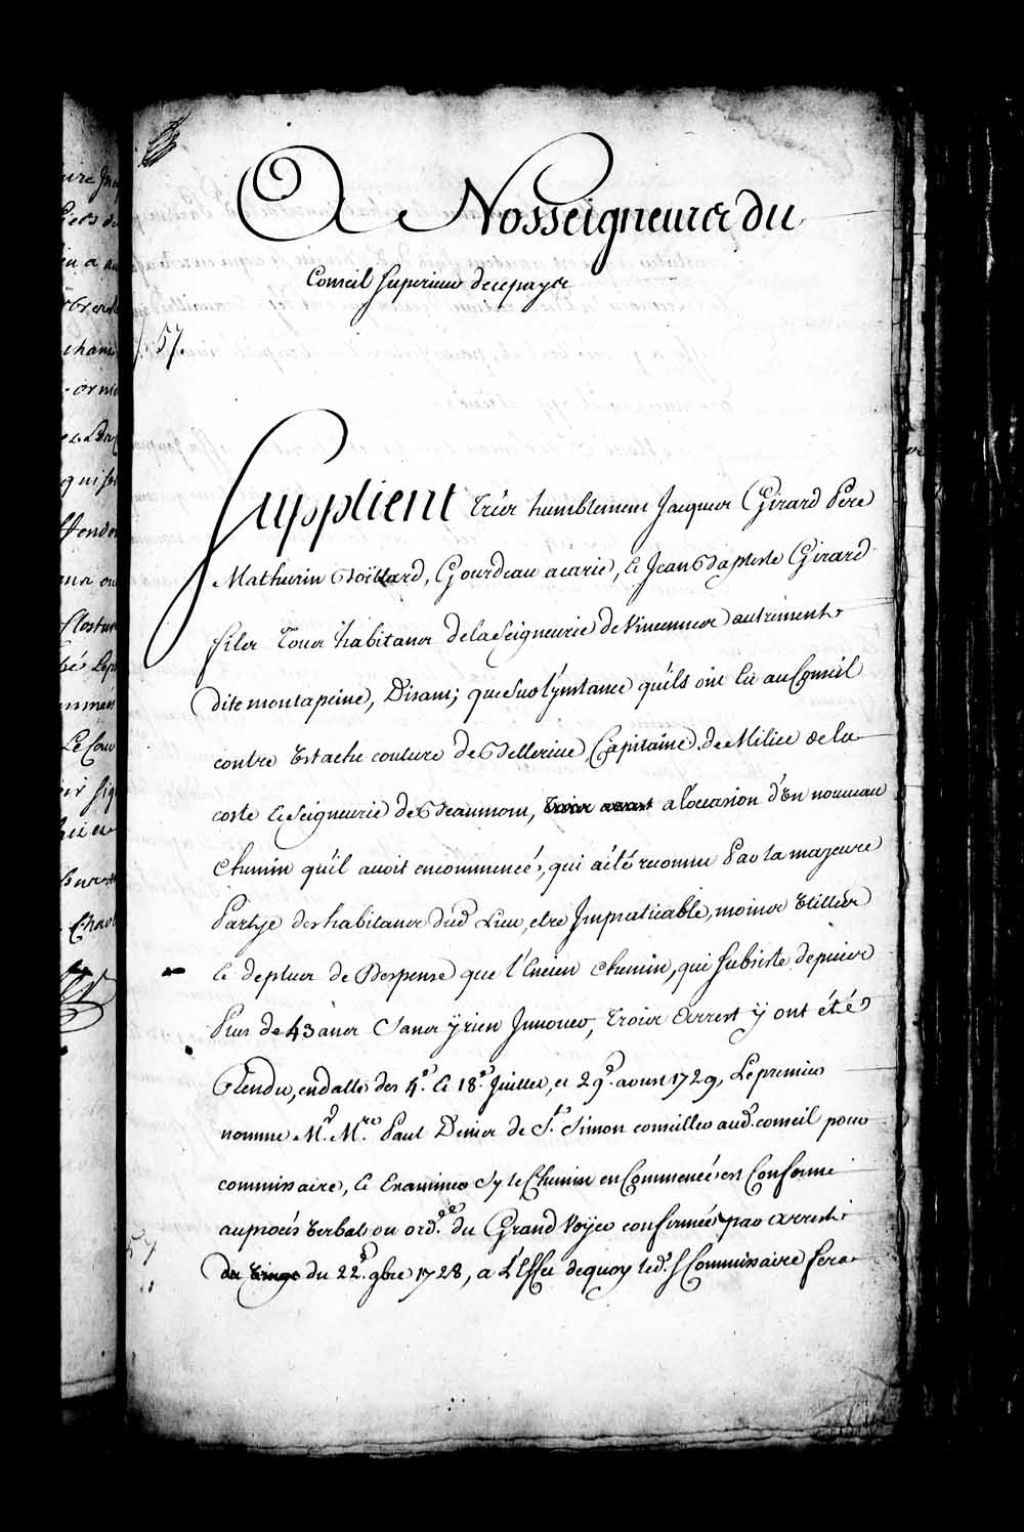 A Nosseigneurs du
Conseil superieur de ce pays
57.
Supplient très humblement Jacques Girard Pere
Mathurin Boillard, Gourdeau acarie, & Jean Baptiste Girard
fils Tous habitans de la Seigneurie de Vincennes autrement
dite montapeine, Disant; que sur l'ynstance qu'ils ont Eu au Conseil
contre Estache couture de Bellerive, Capitaine de Milice de la
coste & Seigneurie de Beaumont, a l'occasion d'Un nouveau
chemin qu'il auoit encommencé, qui a été reconnu Par la majeure
Partye des habitans dud. Lieu, etre Impraticable, moins Utille
& de plus de Despense que l'Encien chemin, qui subsiste depuis
Plus de 43 ans Sans y rien Innouer, Trois Arrest y ont été
Rendu, en datte des 4e. & 18e. Juillet, et 29e. aoust 1729, Le premier
nomme Mr. Me. Paul Denis de St. Simon conseiller aud. conseil pour
commissaire, & Examiner sy le Chemin en Commencé est Conforme
au procés Verbal ou ord.ce du Grand Voyer confirmée par arrest
du 22e. 9bre 1728, a L'Effet de quoy led. S Commissaire sera